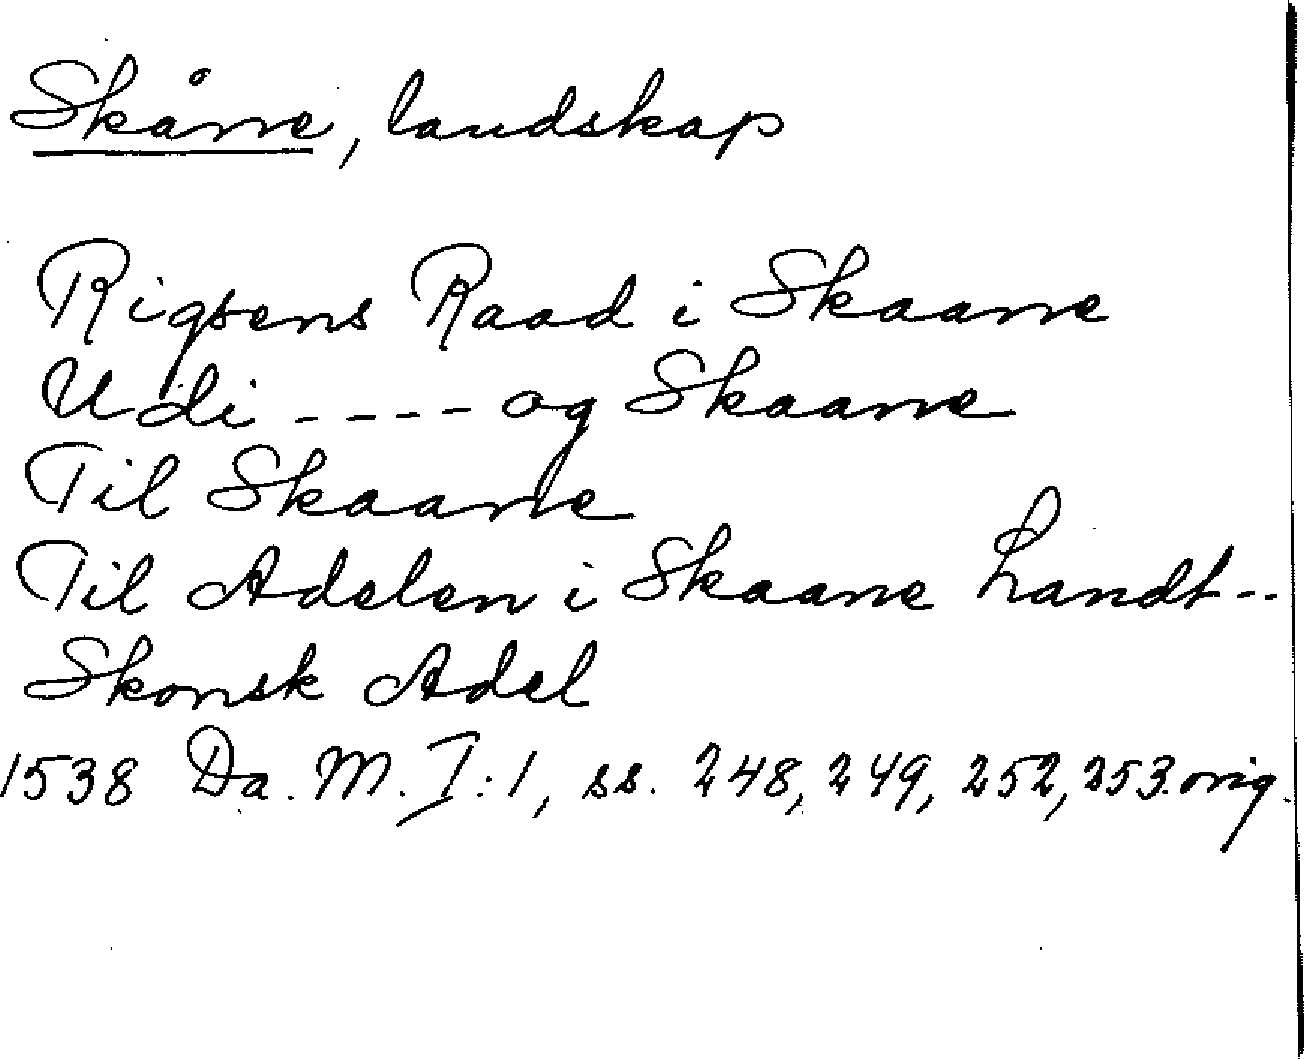 Skåne, landskap
Rigsens Raad i Skaane
Udi ---- og Skaane
Til Skaane
Til Adelen i Skaane Landt--
Skonsk Adel
1538 Da. M. I:1, ss. 248, 249, 252, 253. orig.